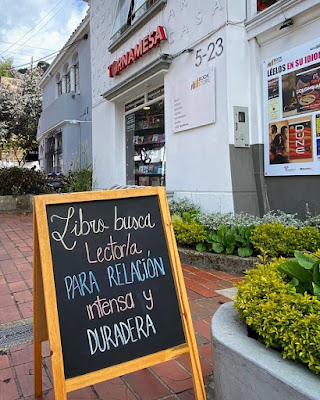 TORNAMESA
5-23
LÉELOS EN SU IDIOMA
DUNE
Libro busca
Lector/a
PARA RELACIÓN
intensa y
DURADERA